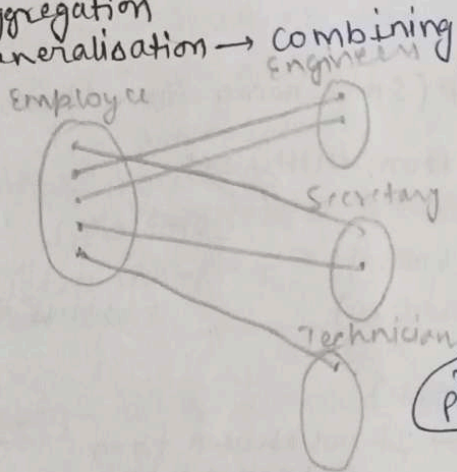 ggregation
neralisation → combining
Engineers
Employee
Secretary
Technician
P